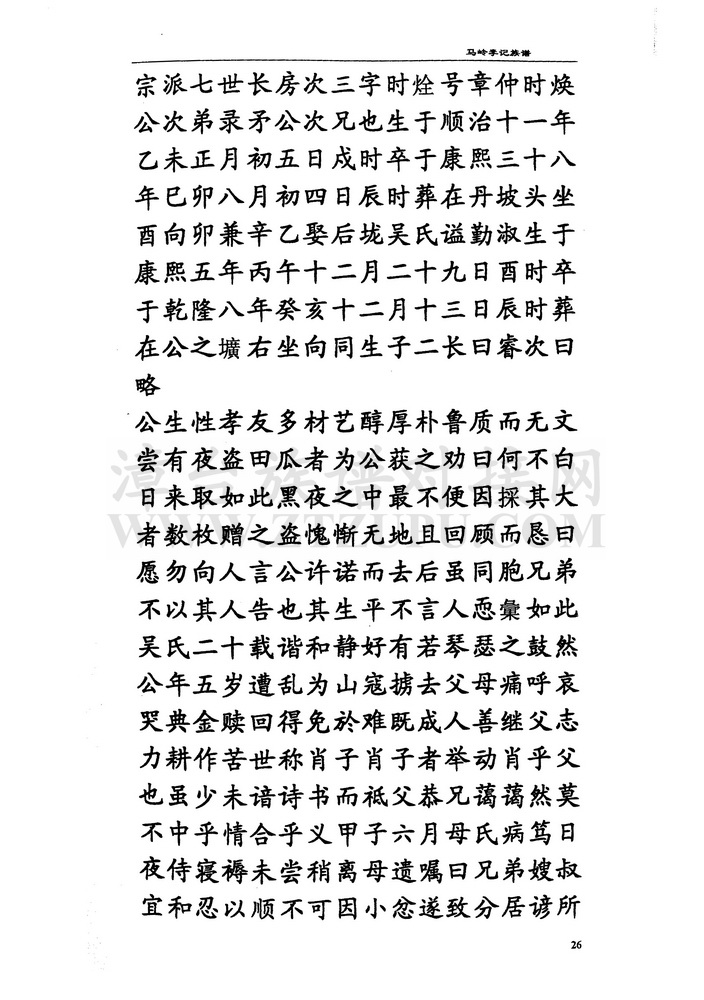 马岭李记族谱
宗派七世长房次三字时烇号章仲时焕
公次弟录矛公次兄也生于顺治十一年
乙未正月初五日戍时卒于康熙三十八
年已卯八月初四日辰时葬在丹坡头坐
酉向卯兼辛乙娶后垅吴氏谥勤淑生于
康熙五年丙午十二月二十九日酉时卒
于乾隆八年癸亥十二月十三日辰时葬
在公之壙右坐向同生子二长曰睿次曰
略
公生性孝友多材艺醇厚朴鲁质而无文
尝有夜盗田瓜者为公获之劝曰何不白
日来取如此黑夜之中最不便因採其大
者数枚赠之盗愧惭无地且回顾而恳曰
愿勿向人言公许诺而去后虽同胞兄弟
不以其人告也其生平不言人恧彙如此
吴氏二十载谐和静好有若琴瑟之鼓然
公年五岁遭乱为山寇掳去父母痛呼哀
哭典金赎回得免於难既成人善继父志
力耕作苦世称肖子肖子者举动肖乎父
也虽少未谙诗书而祗父恭兄蔼蔼然莫
不中乎情合乎义甲子六月母氏病笃日
夜侍寝褥未尝稍离母遗嘱曰兄弟嫂叔
宜和忍以顺不可因小忿遂致分居谚所
26
漳台族谱对接网
WWW.ZTZUPU.COM